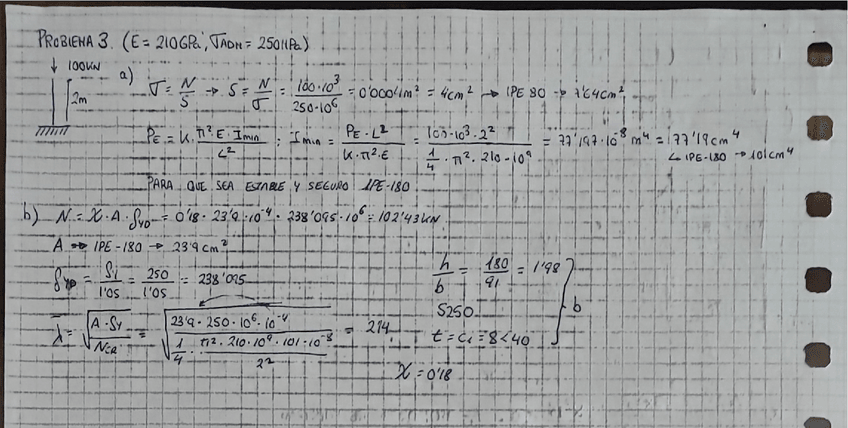 PROBLEMA 3. (E = 210GPa, σADM = 250MPa)
↓ 100KN
2m
a) σ = N/S → S = N/σ = 100·10³/250·10⁶ = 0'0004m² = 4cm² → IPE 80 → 7'64cm²
PE = K·π²·E·Imin/L² ; Imin = PE·L²/K·π²·E = 100·10³·2²/(1/4·π²·210·10⁹) = 77'197·10⁻⁸ m⁴ = 77'19cm⁴
↳ IPE-180 → 101cm⁴
PARA QUE SEA ESTABLE Y SEGURO IPE-180
b) N = χ·A·fyD = 0'18·23'9·10⁻⁴·238'095·10⁶ = 102'43KN
A ⇒ IPE-180 → 23'9cm²
fyD = fy/1'05 = 250/1'05 = 238'095
λ̄ = √(A·fy/NCR) = √(23'9·250·10⁶·10⁻⁴/(1/4·π²·210·10⁹·101·10⁻⁸/2²)) = 2'14
h/b = 180/91 = 1'98
S250
t = c1 = 8 < 40
} b
χ = 0'18